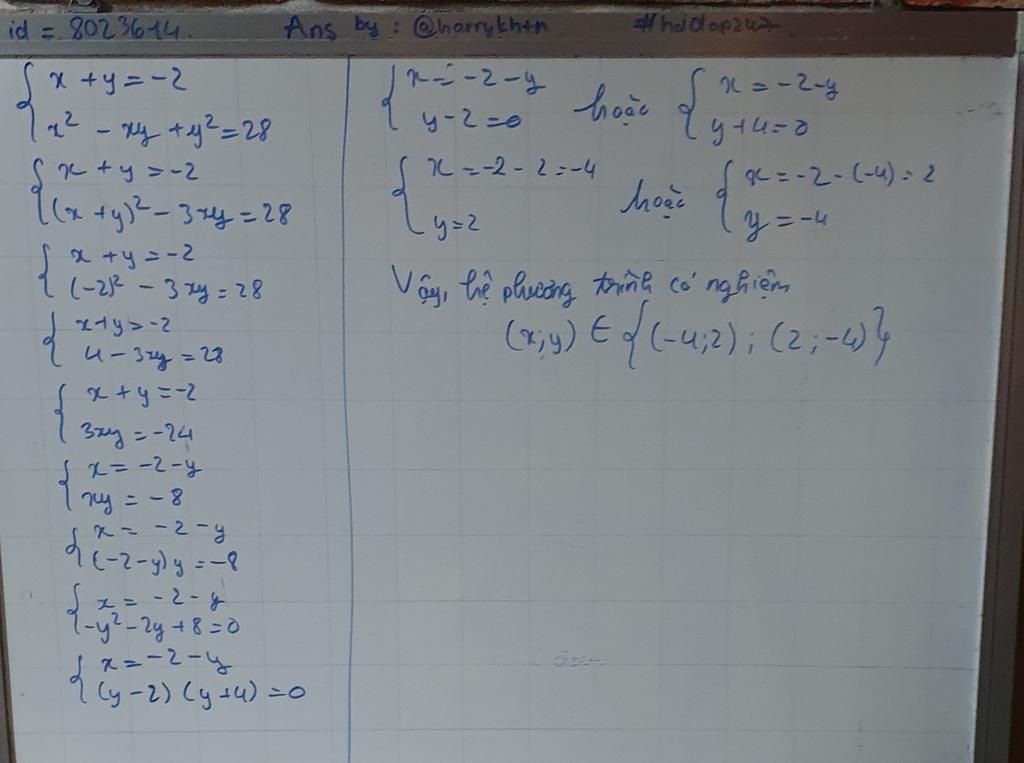 id = 8023614. Ans by : @harrykhtn #hoidap247
{ x + y = -2
x² - xy + y² = 28
{ x + y = -2
(x + y)² - 3xy = 28
{ x + y = -2
(-2)² - 3xy = 28
{ x + y = -2
4 - 3xy = 28
{ x + y = -2
3xy = -24
{ x = -2 - y
xy = -8
{ x = -2 - y
(-2-y)y = -8
{ x = -2 - y
-y² - 2y + 8 = 0
{ x = -2 - y
(y - 2) (y + 4) = 0
{ x = -2 - y hoặc { x = -2 - y
y - 2 = 0 y + 4 = 0
{ x = -2 - 2 = -4 hoặc { x = -2 - (-4) = 2
y = 2 y = -4
Vậy, hệ phương trình có nghiệm
(x;y) ∈ {(-4;2) ; (2;-4)}